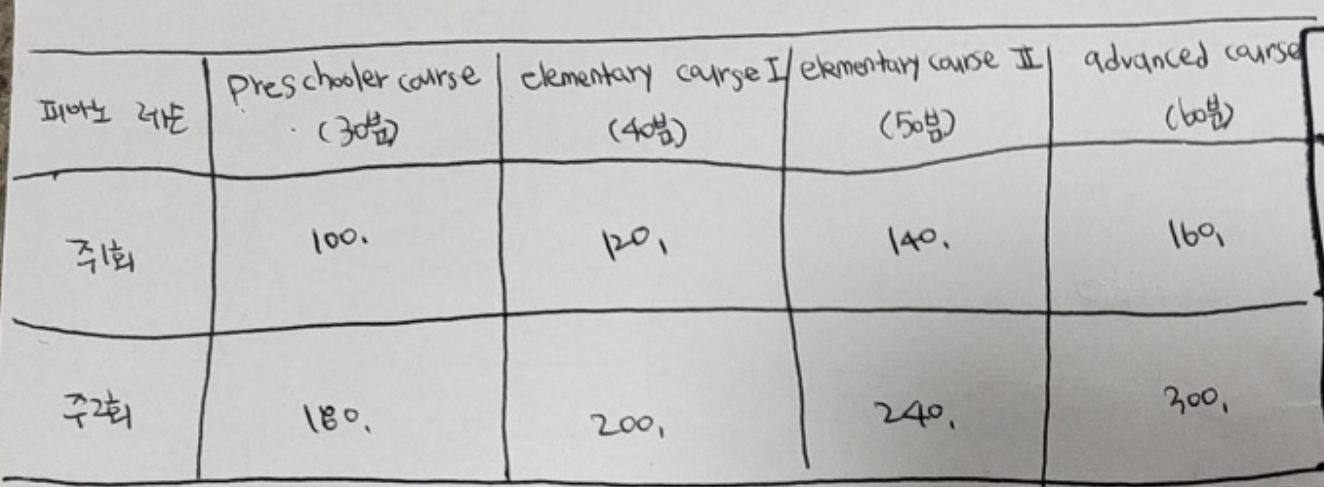 피아노 레슨 preschooler course elementary course I elementary course II advanced course
(30분) (40분) (50분) (60분)
주1회 100. 120, 140. 160,
주2회 180. 200, 240. 300,